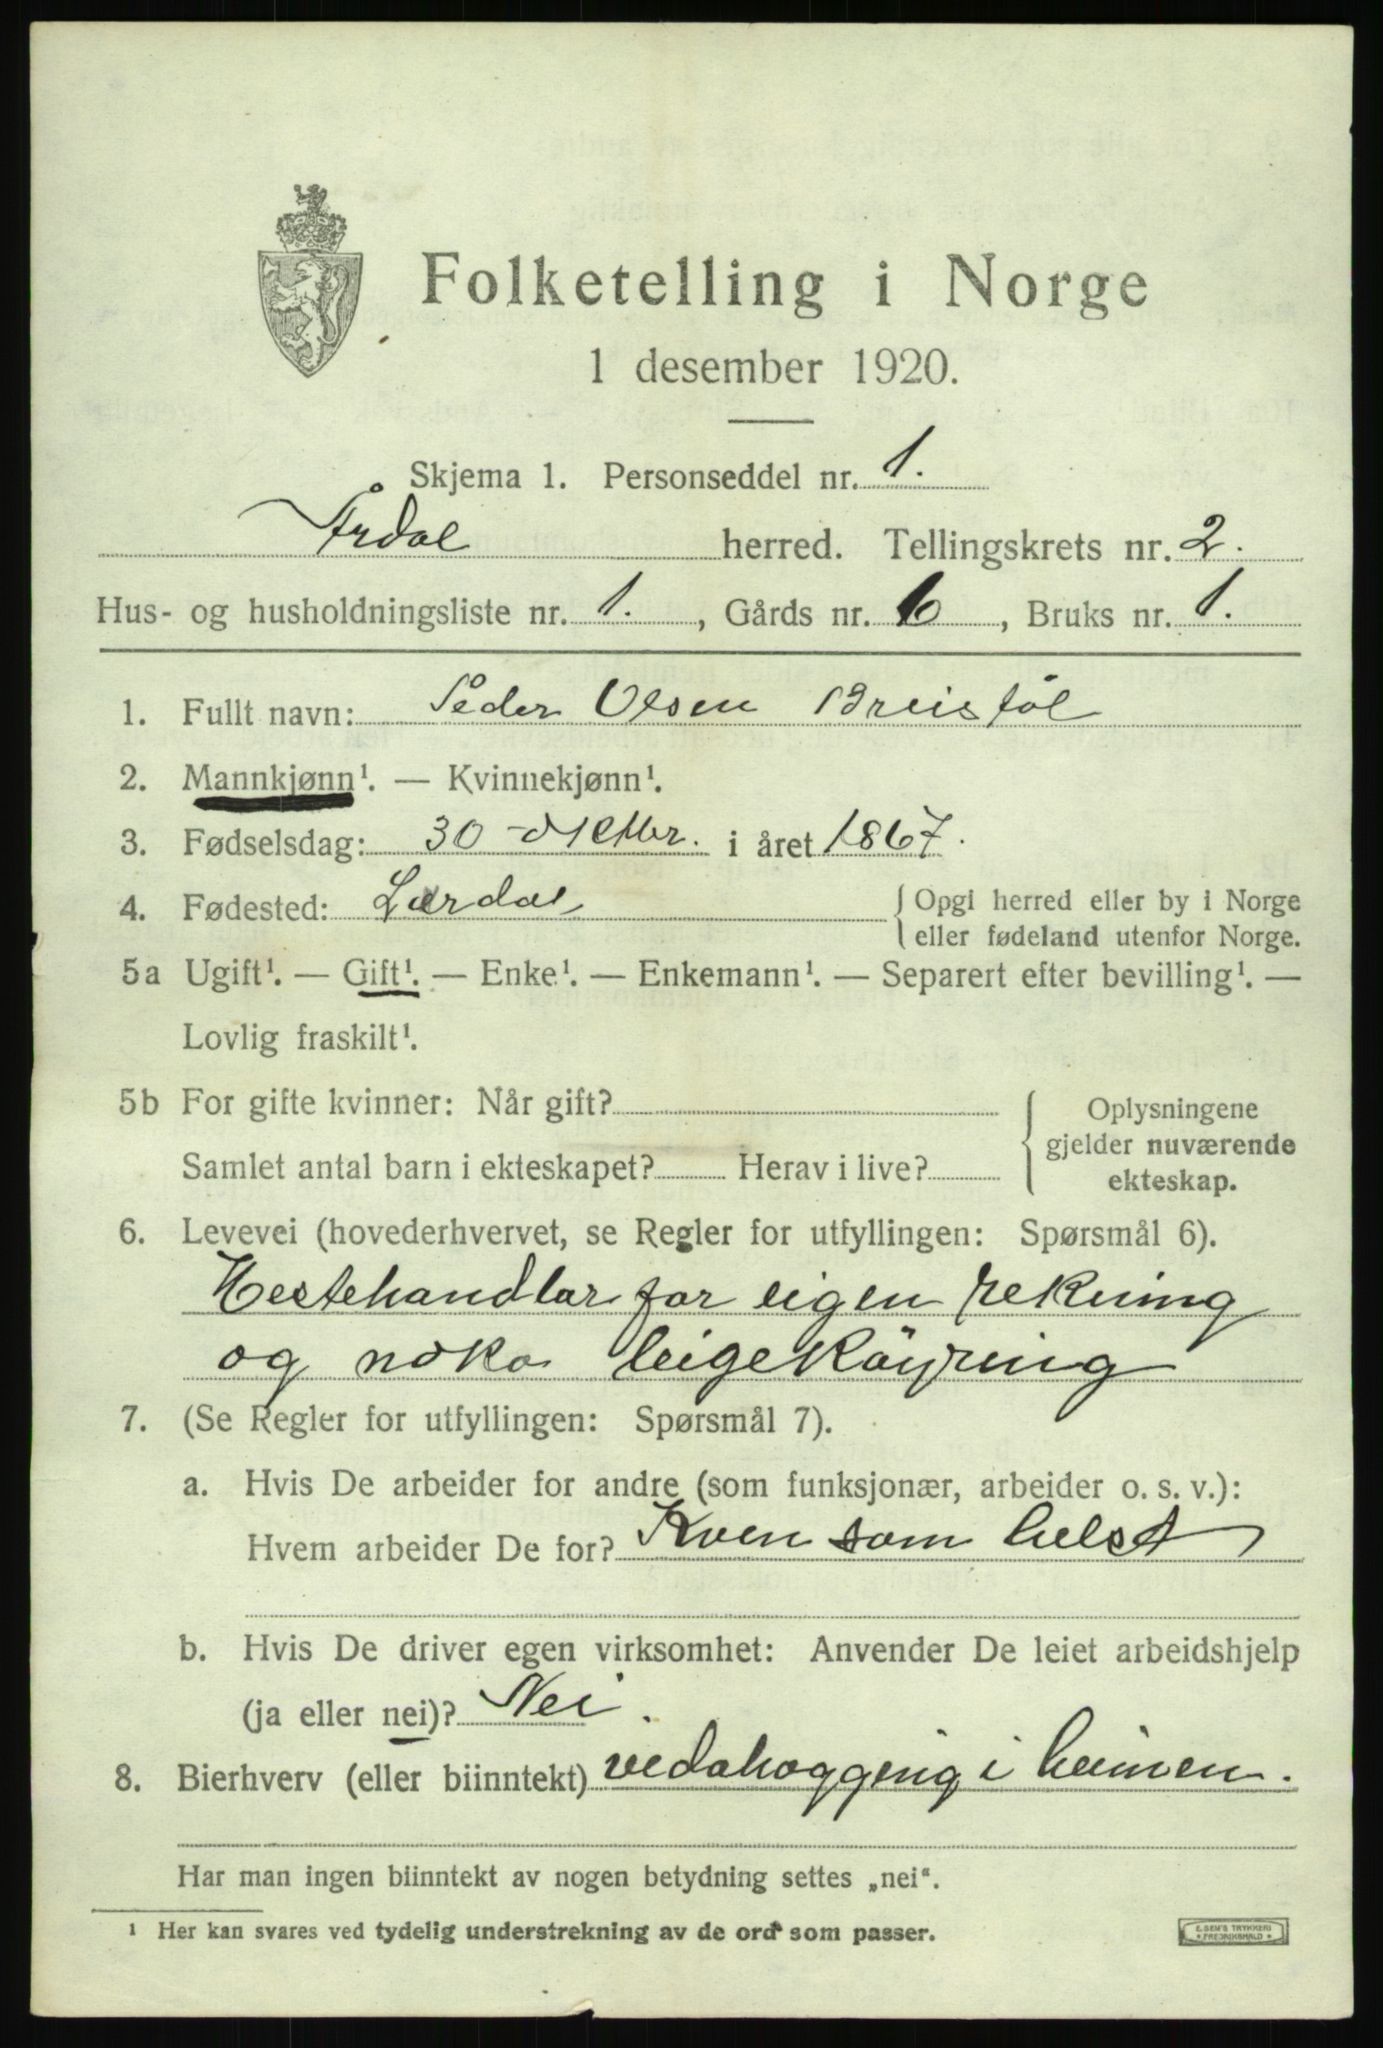 Folketelling i Norge
1 desember 1920.
Skjema 1. Personseddel nr. 1.
Årdal herred. Tellingskrets nr. 2.
Hus- og husholdningsliste nr. 1. , Gårds nr. 6 , Bruks nr. 1.
1. Fullt navn: Peder Olsen Breistøl
2. Mannkjønn¹. — Kvinnekjønn¹.
3. Fødselsdag: 30 - oktbr. i året 1867.
4. Fødested: Lærdal { Opgi herred eller by i Norge
eller fødeland utenfor Norge.
5a Ugift¹. — Gift¹. — Enke¹. — Enkemann¹. — Separert efter bevilling¹. —
Lovlig fraskilt¹.
5b For gifte kvinner: Når gift? { Oplysningene
gjelder nuværende
Samlet antal barn i ekteskapet? Herav i live?
ekteskap.
6. Levevei (hovederhvervet, se Regler for utfyllingen: Spørsmål 6).
Hestehandlar for eigen rekning
og noko leigekøyring
7. (Se Regler for utfyllingen: Spørsmål 7).
a. Hvis De arbeider for andre (som funksjonær, arbeider o. s. v.):
Hvem arbeider De for? Kven som helst
b. Hvis De driver egen virksomhet: Anvender De leiet arbeidshjelp
(ja eller nei)? Nei.
8. Bierhverv (eller biinntekt) vedahogging i heimen.
Har man ingen biinntekt av nogen betydning settes „nei“.
¹ Her kan svares ved tydelig understrekning av de ord som passer.
E. SEM'S TRYKKERI
FREDRIKSHALD